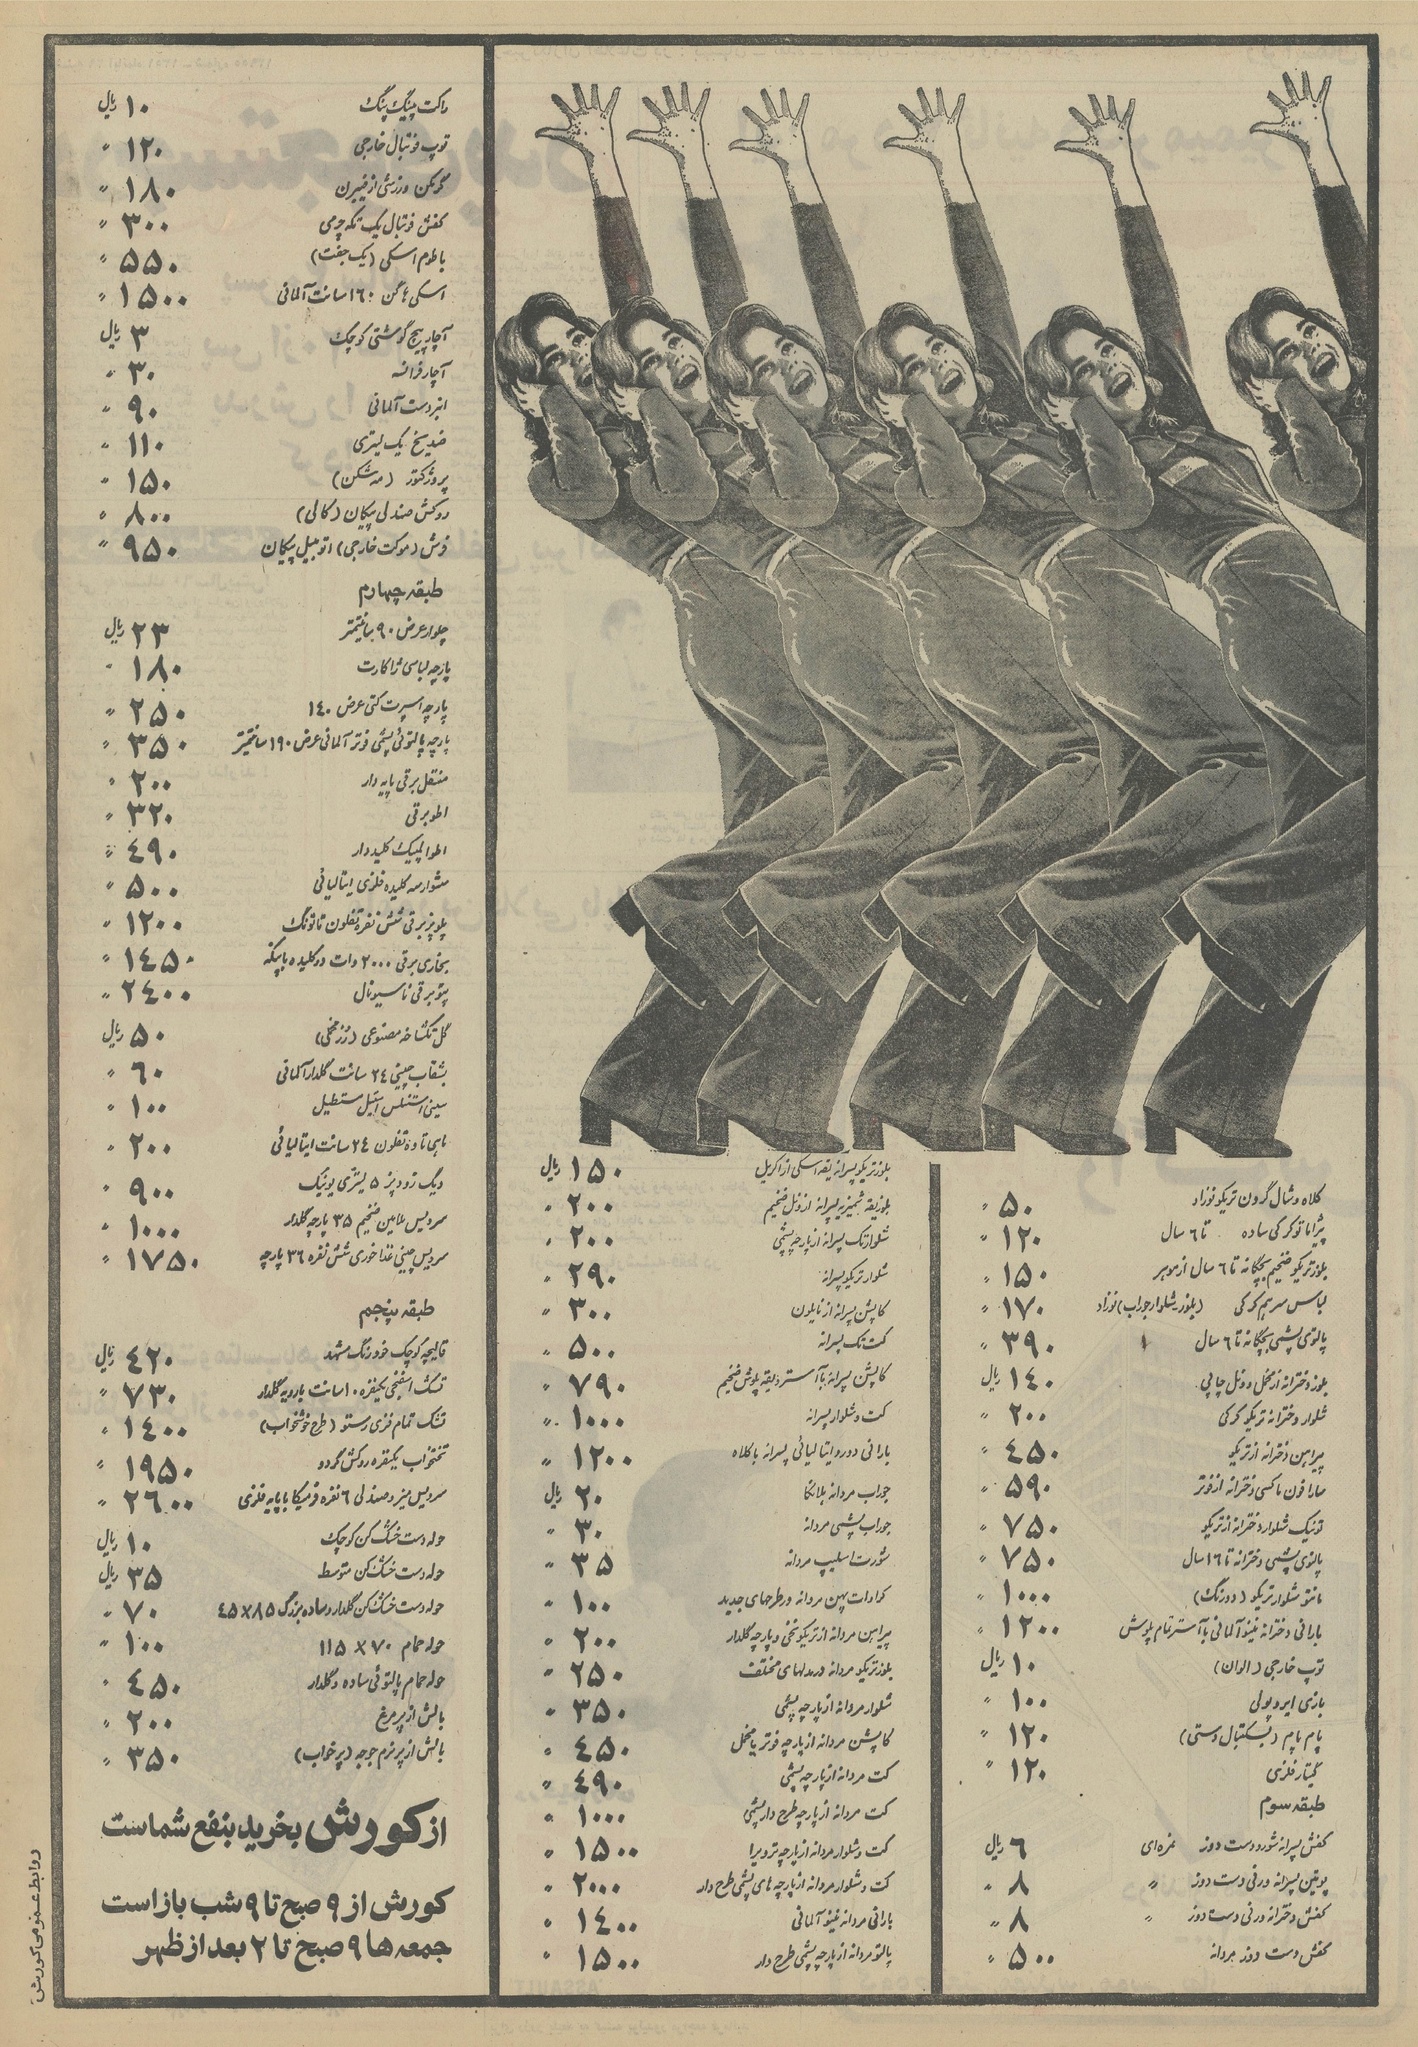 کلاه و شال گردن تریکو نوزاد ۵۰ "
پیژاما تو کرکی ساده تا ۶ سال ۱۲۰ "
بلوز تریکو ضخیم بچگانه تا ۶ سال از موهر ۱۵۰ "
لباس سرهم کرکی (بلوز شلوار جوراب) نوزاد ۱۷۰ "
پالتوی پشمی بچگانه تا ۶ سال ۳۹۰ "
بلوز دخترانه از مخمل و ونل چاپی ۱۴۰ ریال
شلوار دخترانه تریکو کرکی ۲۰۰ "
پیراهن دخترانه از تریکو ۴۵۰ "
سارافون ماکسی دخترانه از فوتر ۵۹۰ "
تونیک شلوار دخترانه از تریکو ۷۵۰ "
پالتوی پشمی دخترانه تا ۱۶ سال ۷۵۰ "
مانتو شلوار تریکو (دورنگ) ۱۰۰۰ "
بارانی دخترانه نینو آلمانی با آستر تمام پلوش ۱۲۰۰ "
توپ خارجی (الوان) ۱۰ ریال
بازی ایروپولی ۱۰۰ "
پام پام (بسکتبال دستی) ۱۲۰ "
گیتار فلزی ۱۲۰ "
طبقه سوم
کفش پسرانه شورو دست دوز نمره‌ای ۶ ریال
پوتین پسرانه ورنی دست دوز " ۸ "
کفش دخترانه ورنی دست دوز " ۸ "
کفش دست دوز مردانه ۵۰۰ "
بلوز تریکو پسرانه یقه اسکی از اکریل ۱۵۰ ریال
بلوز یقه شمیزیه پسرانه از ونل ضخیم ۲۰۰ "
شلوار تک پسرانه از پارچه پشمی ۲۰۰ "
شلوار تریکو پسرانه ۲۹۰ "
کاپشن پسرانه از نایلون ۳۰۰ "
کت تک پسرانه ۵۰۰ "
کاپشن پسرانه با آستر و یقه پلوش ضخیم ۷۹۰ "
کت و شلوار پسرانه ۱۰۰۰ "
بارانی دورو ایتالیائی پسرانه با کلاه ۱۲۰۰ "
جوراب مردانه بلانکا ۲۰ ریال
جوراب پشمی مردانه ۳۰ "
شورت اسلیپ مردانه ۳۵ "
کراوات پهن مردانه در طرحهای جدید ۱۰۰ "
پیراهن مردانه از تریکو نخی و پارچه گلدار ۲۰۰ "
بلوز تریکو مردانه در مدلهای مختلف ۲۵۰ "
شلوار مردانه از پارچه پشمی ۳۵۰ "
کاپشن مردانه از پارچه فوتر یا مخمل ۴۵۰ "
کت مردانه از پارچه پشمی ۴۹۰ "
کت مردانه از پارچه طرح دار پشمی ۱۰۰۰ "
کت و شلوار مردانه از پارچه ترویرا ۱۵۰۰ "
کت و شلوار مردانه از پارچه های پشمی طرح دار ۲۰۰۰ "
بارانی مردانه نینو آلمانی ۱۴۰۰ "
پالتو مردانه از پارچه پشمی طرح دار ۱۵۰۰ "
راکت پینگ پنگ ۱۰ ریال
توپ فوتبال خارجی ۱۲۰ "
گرمکن ورزشی از فیبرن ۱۸۰ "
کفش فوتبال یک تکه چرمی ۳۰۰ "
باطوم اسکی (یک جفت) ۵۵۰ "
اسکی هاگن ۱۶۰ سانت آلمانی ۱۵۰۰ "
آچار پیچ گوشتی کوچک ۳ ریال
آچار فرانسه ۳۰ "
انبردست آلمانی ۹۰ "
ضد یخ یک لیتری ۱۱۰ "
پروژکتور (مه شکن) ۱۵۰ "
روکش صندلی پیکان (گالی) ۸۰۰ "
فرش (موکت خارجی) اتومبیل پیکان ۹۵۰ "
طبقه چهارم
چلوار عرض ۹۰ سانتیمتر ۲۳ ریال
پارچه لباسی ژاکارت ۱۸۰ "
پارچه اسپرت کتی عرض ۱۴۰ ۲۵۰ "
پارچه پالتوئی پشمی فوتر آلمانی عرض ۱۹۰ سانتیمتر ۳۵۰ "
منقل برقی پایه دار ۲۰۰ "
اطو برقی ۳۲۰ "
اطو المپیک کلیددار ۴۹۰ "
سشوار سه کلیده فلزی ایتالیائی ۵۰۰ "
پلوپز برقی شش نفره تفلون تاتونگ ۱۲۰۰ "
بخاری برقی ۲۰۰۰ وات دو کلیده با پنکه ۱۴۵۰ "
پتو برقی ناسیونال ۲۴۰۰ "
گل تکشاخه مصنوعی (رز مخملی) ۵۰ ریال
بشقاب چینی ۲۴ سانت گلدار آلمانی ۶۰ "
سینی استنلس استیل مستطیل ۱۰۰ "
ماهی تاوه تفلون ۲۴ سانت ایتالیائی ۲۰۰ "
دیگ زودپز ۵ لیتری یونیک ۹۰۰ "
سرویس ملامین ضخیم ۳۵ پارچه گلدار ۱۰۰۰ "
سرویس چینی غذاخوری شش نفره ۳۶ پارچه ۱۷۵۰ "
طبقه پنجم
قالیچه کوچک خودرنگ مشهد ۴۲۰ ریال
تشک اسفنجی یکنفره ۱۰ سانت با رویه گلدار ۷۳۰ "
تشک تمام فنری رستو (طرح خوشخواب) ۱۴۰۰ "
تختخواب یکنفره روکش گردو ۱۹۵۰ "
سرویس میز و صندلی ۶ نفره فرمیکا با پایه فلزی ۲۶۰۰ "
حوله دست خشک کن کوچک ۱۰ ریال
حوله دست خشک کن متوسط ۳۵ ریال
حوله دست خشک کن گلدار و ساده بزرگ ۸۵×۴۵ ۷۰ "
حوله حمام ۷۰×۱۱۵ ۱۰۰ "
حوله حمام پالتوئی ساده و گلدار ۴۵۰ "
بالش از پر مرغ ۲۰۰ "
بالش از پر نرم جوجه (پرخواب) ۳۵۰ "
از کورش بخرید بنفع شماست
کورش از ۹ صبح تا ۹ شب باز است
جمعه ها ۹ صبح تا ۲ بعد از ظهر
روابط عمومی کورش